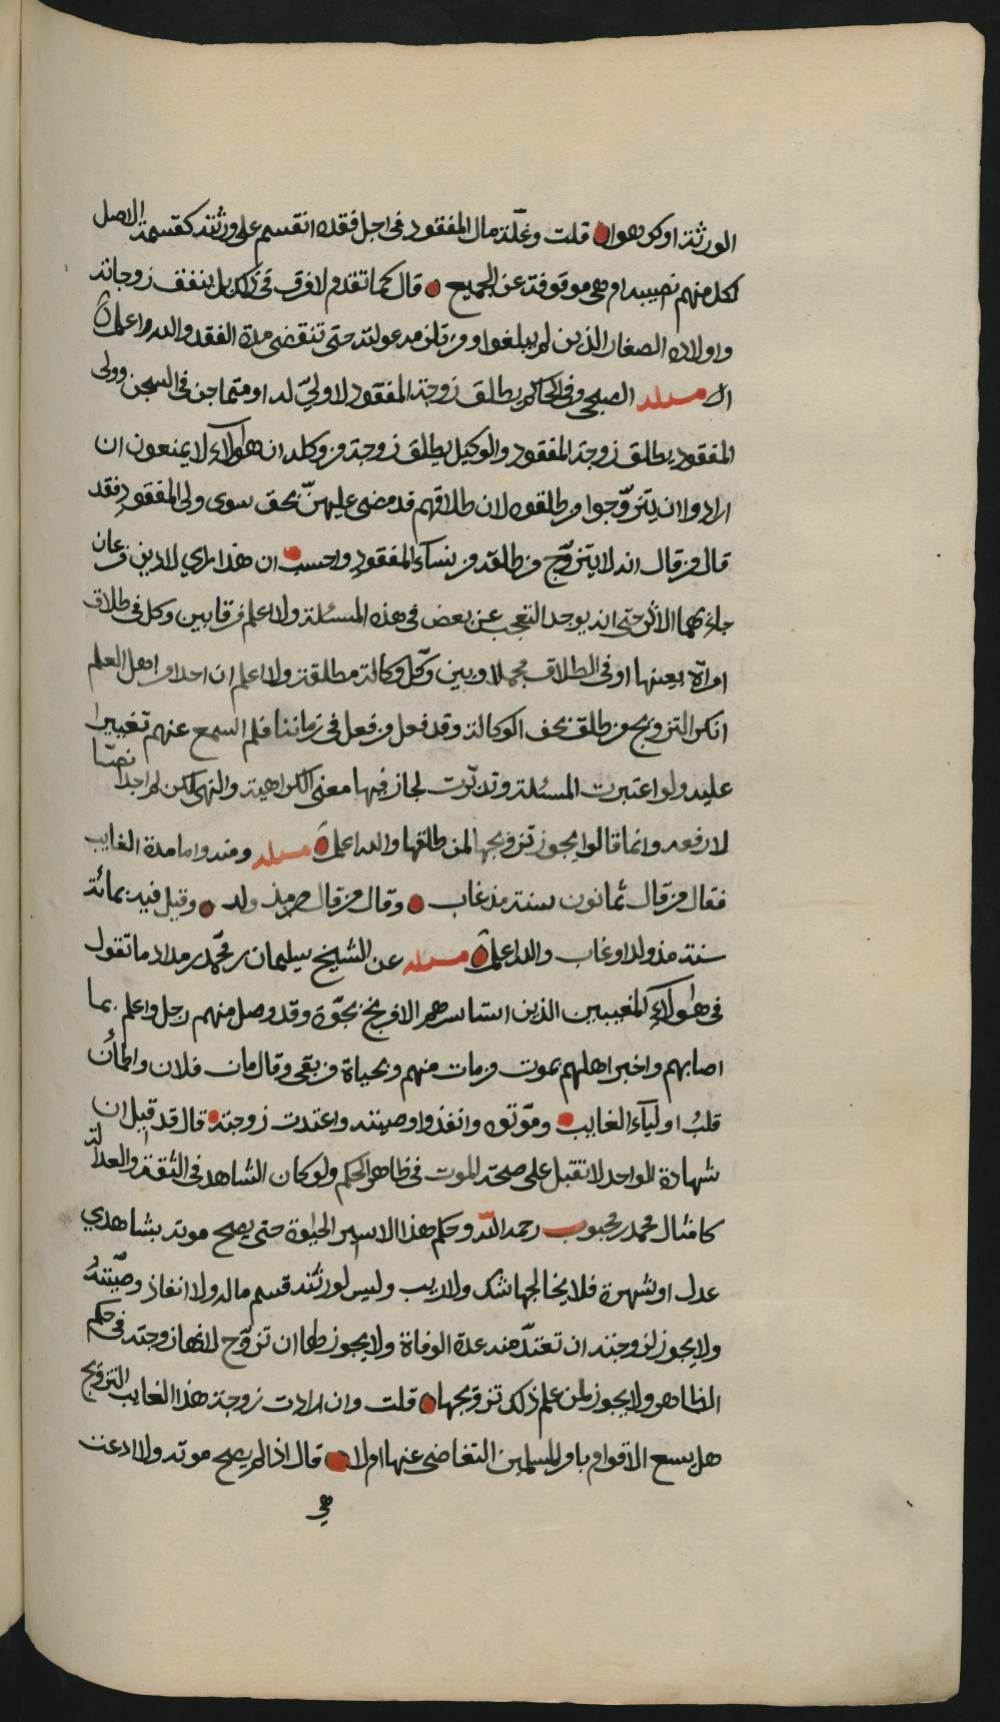 الورثة او كرهوا قلت وغلة مال المفقود في اجل فقده اتقسم على ورثته كقسمة الاصل
لكل منهم نصيبه ام هي موقوفة عن الجميع قال كما تقدم لا فرق في ذلك بل ينفق زوجاته
واولاده الصغار الذين لم يبلغوا ومن تلزمه عولته حتى تنقضي مدة الفقد والله اعلم
مسئلة الصبحي وفي الحاكم يطلق زوجة المفقود لا ولي له او متماجن في السجن وولي
المفقود يطلق زوجة المفقود والوكيل يطلق زوجة من وكله ان هؤلاء لا يمنعون ان
ارادوا ان يتزوجوا من طلقوه لان طلاقهم قد مضى عليهن بحق سوى ولي المفقود فقد
قال من قال انه لا يتزوج من طلقه من نساء المفقود واحسب ان هذا راي لا دين
جاء بهما الاثر حتى انه يوجد التعجب عن بعض في هذه المسئلة ولا اعلم فرقا بين وكل في طلاق
امراة بعينها او في الطلاق مجملا وبين وكل وكالة مطلقة ولا اعلم ان احدا من اهل العلم
انكر التزويج من طلق بحق الوكالة وقد فعل من فعل في زماننا فلم اسمع عنهم تغييرا
عليه ولو اعتبرت المسئلة وتدبرت لجاز فيها معنى الكراهية والنهي لكن لم اجد نصا
لارفعه وانما قالوا يجوز تزويجها لمن طلقها والله اعلم مسئلة ومنه واما مدة الغايب
فقال من قال ثمانون سنة مذ غاب وقال من قال مذ ولد وقيل فيه بمائة
سنة مذ ولد او غاب والله اعلم مسئلة عن الشيخ سليمان بن محمد بن مداد ما تقول
في هؤلاء المغيبين الذين استاسرهم الافرنج بحوة وقد وصل منهم رجل واعلم بما
اصابهم واخبر اهلهم بموت من مات منهم وبحياة من بقي وقال مات فلان واطمأن
قلب اولياء الغايب وموتوه وانفذوا وصيته واعتدت زوجته قال قد قيل ان
شهادة الواحد لا تقبل على صحة الموت في ظاهر الحكم ولو كان الشاهد في الثقة والعدالة
كامثال محمد بن محبوب رحمه الله وحكم هذا الاسير الحيوة حتى يصح موته بشاهدي
عدل او شهرة فلا يخالجها شك ولا ريب وليس لورثته قسم ماله ولا انفاذ وصيته
ولا يجوز لزوجته ان تعتد منه عدة الوفاة ولا يجوز لها ان تزوج لانها زوجته في حكم
الظاهر ولا يجوز لمن علم ذلك تزويجها قلت وان ارادت زوجة هذا الغايب التزويج
هل يسع الاقوام بامر المسلمين التغاضي عنها ام لا قال اذا لم يصح موته ولا ادعت
هي